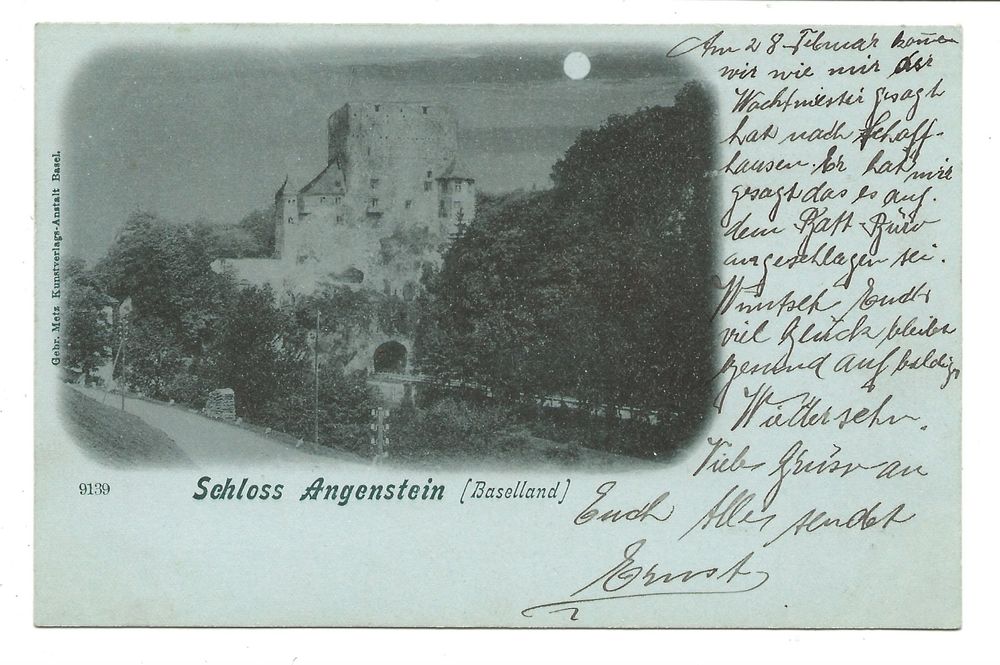 Am 28 Februar komen
wir wie mir der
Wachtmeister gesagt
hat nach Schaff-
hausen. Er hat mir
gesagt das es auf
dem Büro
angeschlagen sei.
Wüntsch Euch
viel Glück bleibet
gesund auf baldig
Wiedersehn.
Viele Grüsse an
Euch Alles sendet
Ernst
Gebr. Metz Kunstverlags-Anstalt Basel.
9139
Schloss Angenstein (Baselland)